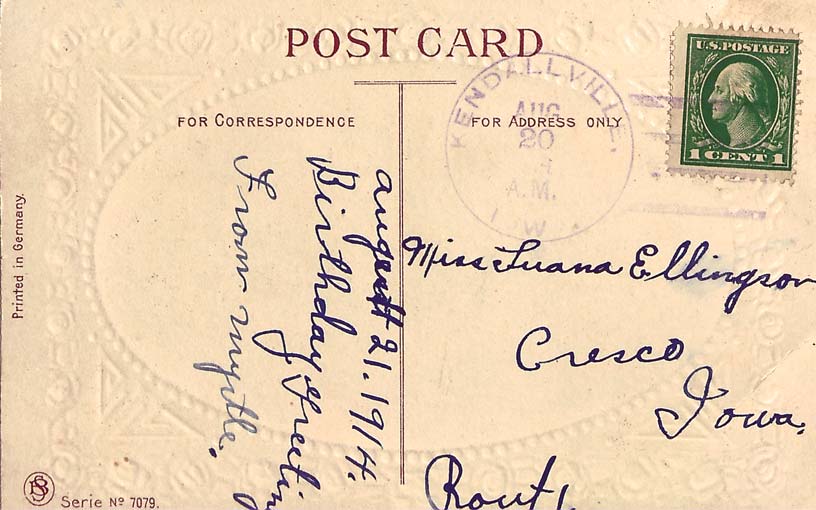 POST CARD
FOR CORRESPONDENCE
FOR ADDRESS ONLY
KENDALLVILLE,
AUG
20
A.M.
U.S. POSTAGE
1 CENT 1
august 21. 1914.
Birthday Greetin
From Myrtle.
Miss Luana Ellingson
Cresco
Iowa.
Rout 1
Printed in Germany.
BS
Serie No 7079.